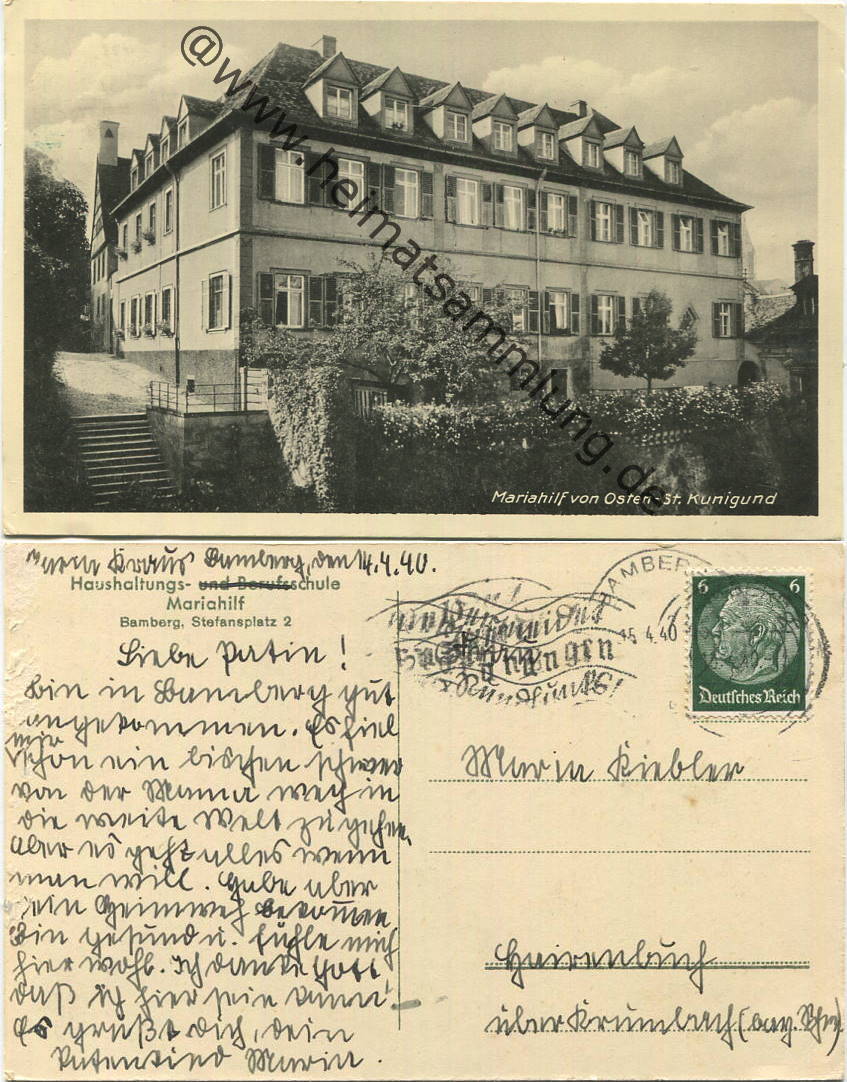 @www.heimatsammlung.de
Mariahilf von Osten - St. Kunigund
Maria Kraus Bamberg, den 14.4.40.
Haushaltungs- und Berufsschule
Mariahilf
Bamberg, Stefansplatz 2
Liebe Patin!
Bin in Bamberg gut
angekommen. Es fiel
mir
schon ein bischen schwer
von der Mama weg in
die weite Welt zu gehen.
Aber es geht alles wenn
man will. Habe aber
kein Heimweh bekommen
Bin gesund u. fühle mich
hier wohl. Ich danke Gott
daß ich hier sein kann!
Es grüßt dich, dein
Patenkind Maria.
BAMBERG
15.4.40
Rundfunks!
6 6
Deutsches Reich
Maria Kiebler
Hairenbuch
über Krumbach (bay. Schw.)